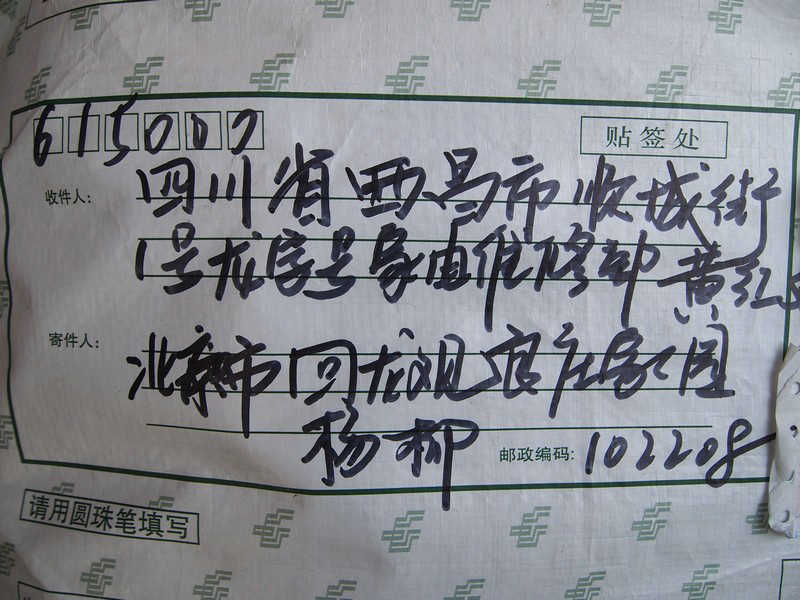 615000
贴签处
收件人: 四川省西昌市顺城街
1号龙字号家电维修部 黄红
寄件人: 北京市回龙观官庄家园
杨柳
邮政编码: 102208
请用圆珠笔填写